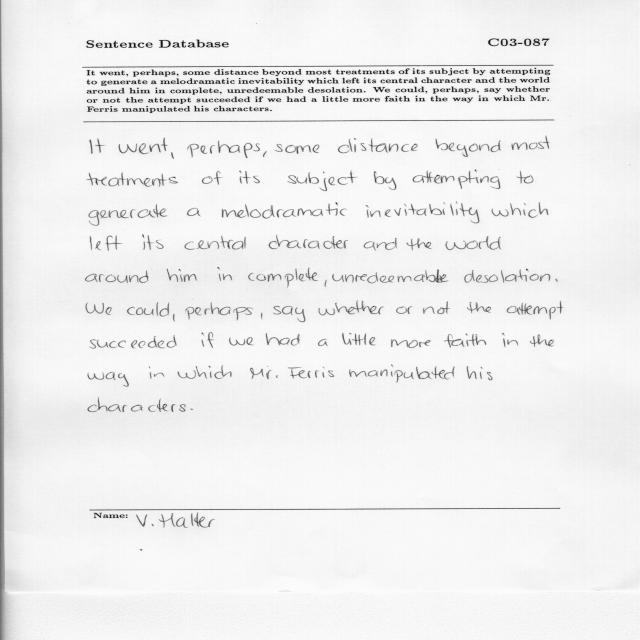 Sentence Database C03-087
It went, perhaps, some distance beyond most treatments of its subject by attempting
to generate a melodramatic inevitability which left its central character and the world
around him in complete, unredeemable desolation. We could, perhaps, say whether
or not the attempt succeeded if we had a little more faith in the way in which Mr.
Ferris manipulated his characters.
It went, perhaps, some distance beyond most
treatments of its subject by attempting to
generate a melodramatic inevitability which
left its central character and the world
around him in complete, unredeemable desolation.
We could, perhaps, say whether or not the attempt
succeeded if we had a little more faith in the
way in which Mr. Ferris manipulated his
characters.
Name: V. Halter